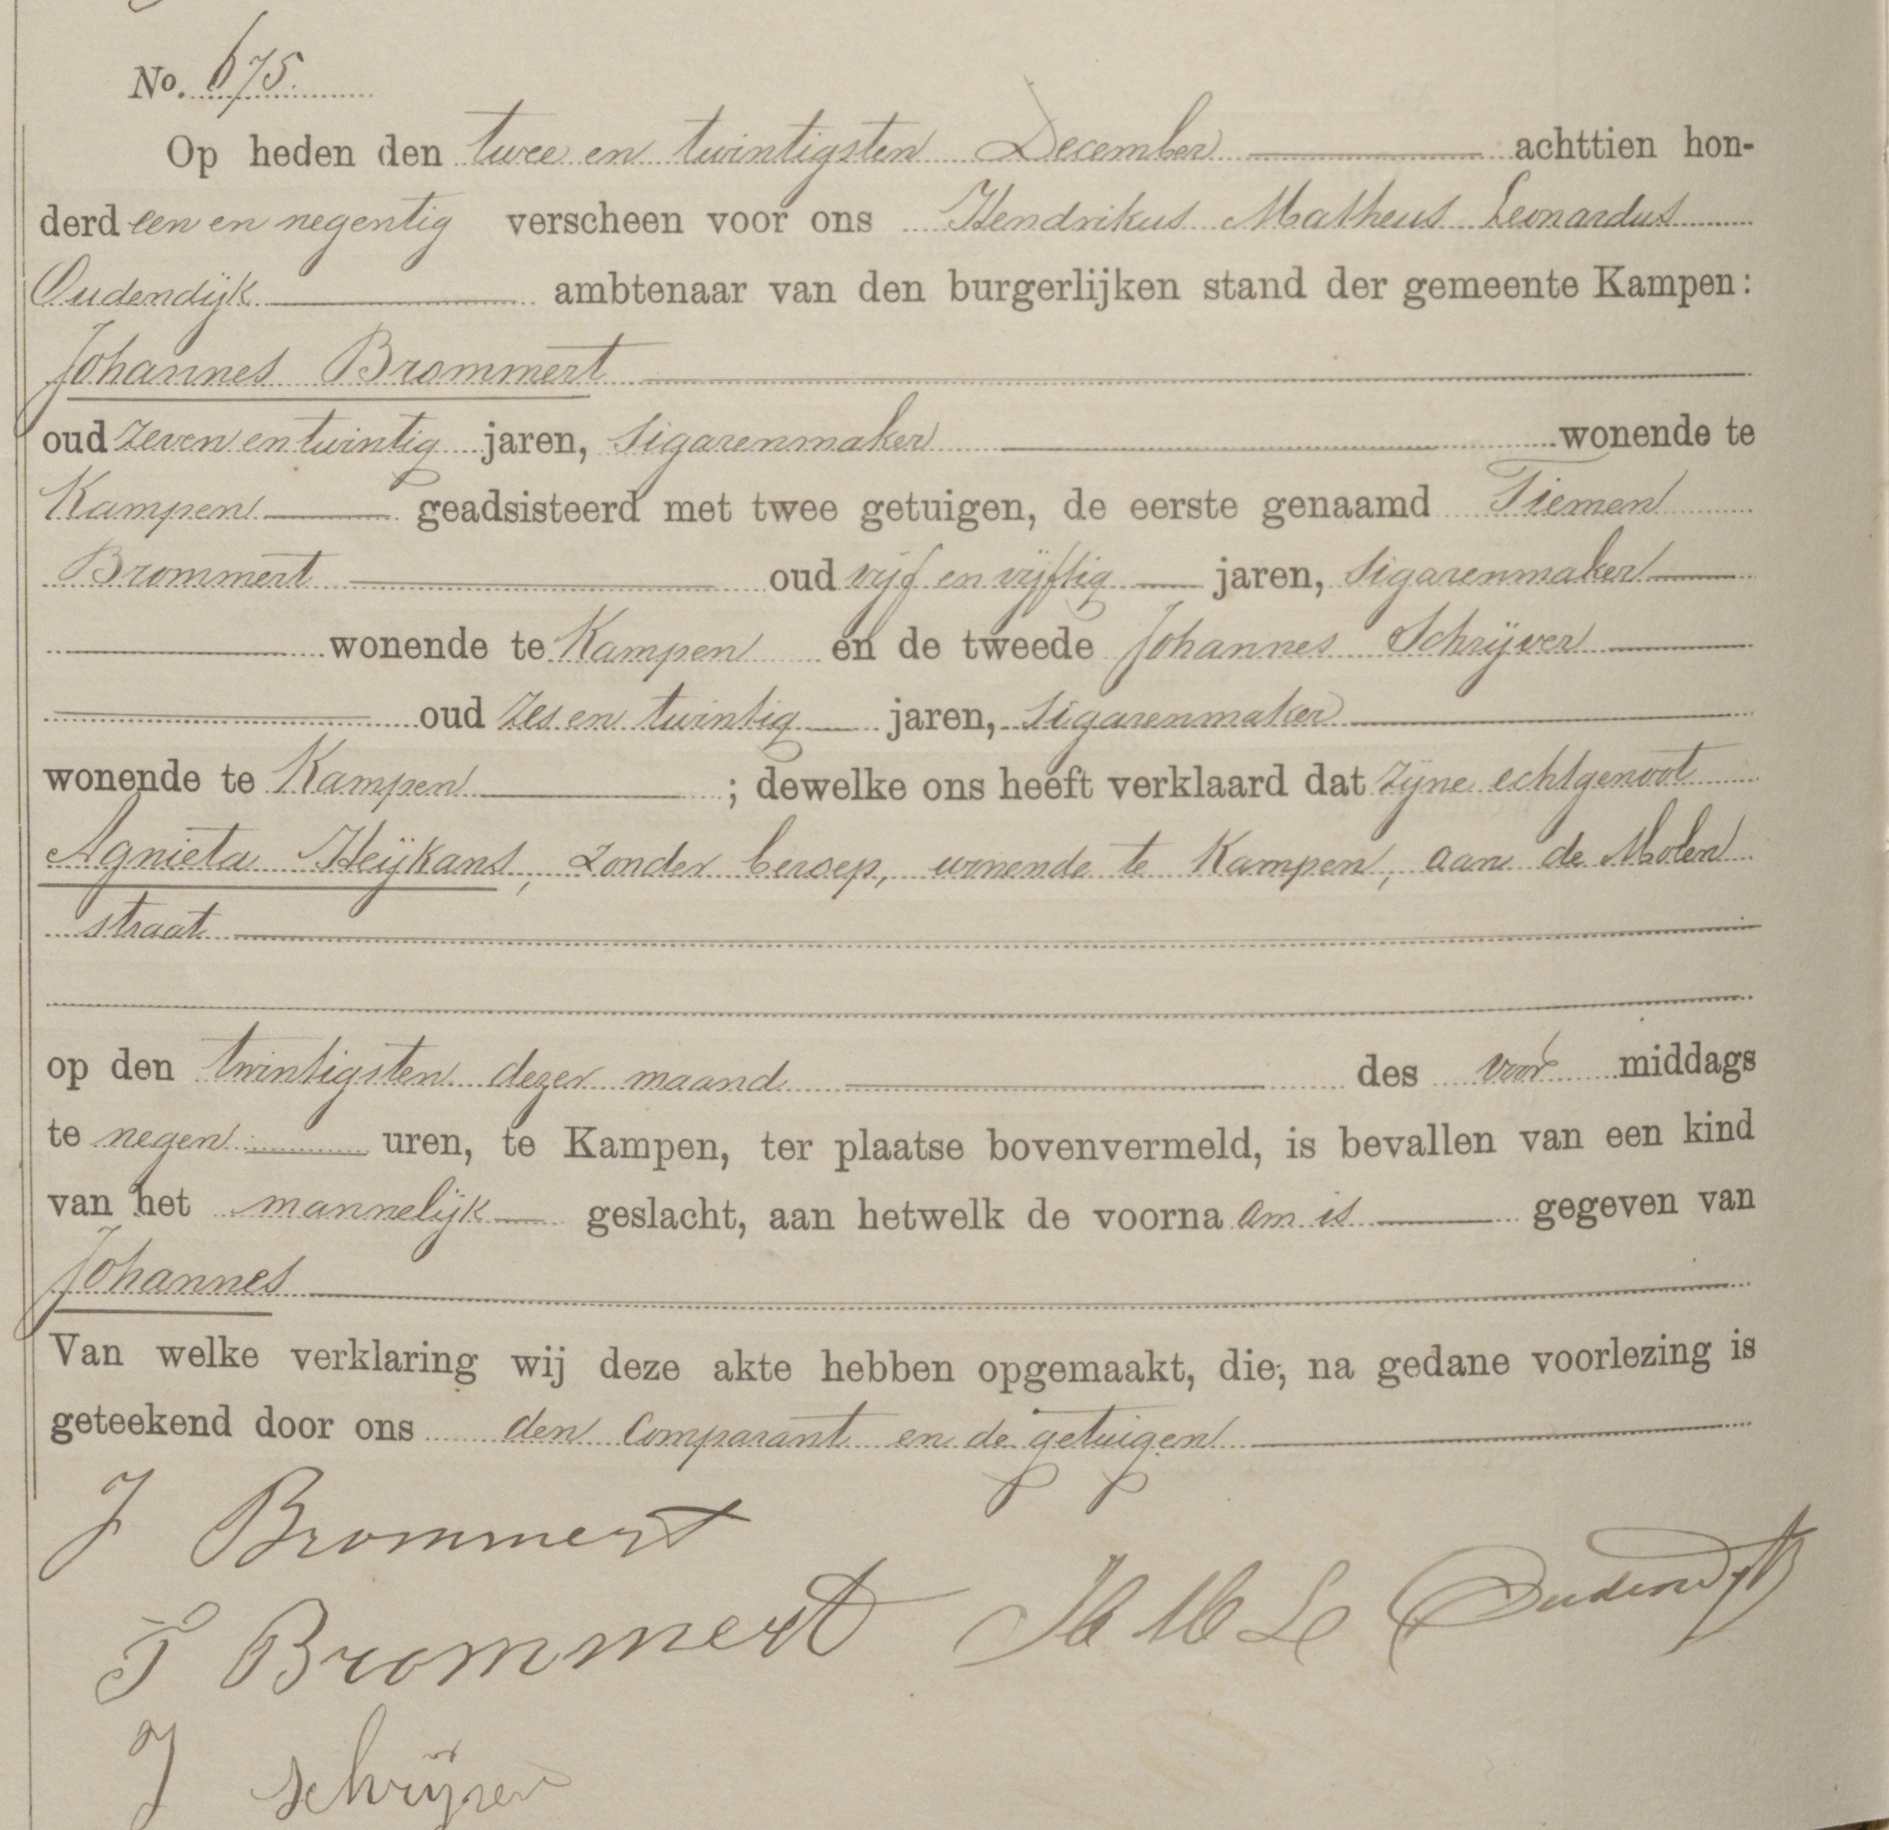 No. 675.
Op heden den twee en twintigsten December achttien hon-
derd een en negentig verscheen voor ons Hendrikus Matheus Leonardus
Oudendijk ambtenaar van den burgerlijken stand der gemeente Kampen:
Johannes Brommert
oud zeven en twintig jaren, sigarenmaker wonende te
Kampen geadsisteerd met twee getuigen, de eerste genaamd Tiemen
Brommert oud vijf en vijftig jaren, sigarenmaker
wonende te Kampen en de tweede Johannes Schrijver
oud zes en twintig jaren, sigarenmaker
wonende te Kampen ; dewelke ons heeft verklaard dat zijne echtgenoot
Agnieta Heijkans, zonder beroep, wonende te Kampen, aan de Molen
straat
op den twintigsten dezer maand des voor middags
te negen uren, te Kampen, ter plaatse bovenvermeld, is bevallen van een kind
van het mannelijk geslacht, aan hetwelk de voorna am is gegeven van
Johannes
Van welke verklaring wij deze akte hebben opgemaakt, die, na gedane voorlezing is
geteekend door ons den comparant en de getuigen
J Brommert
T Brommert H M L Oudendijk
J schrijver